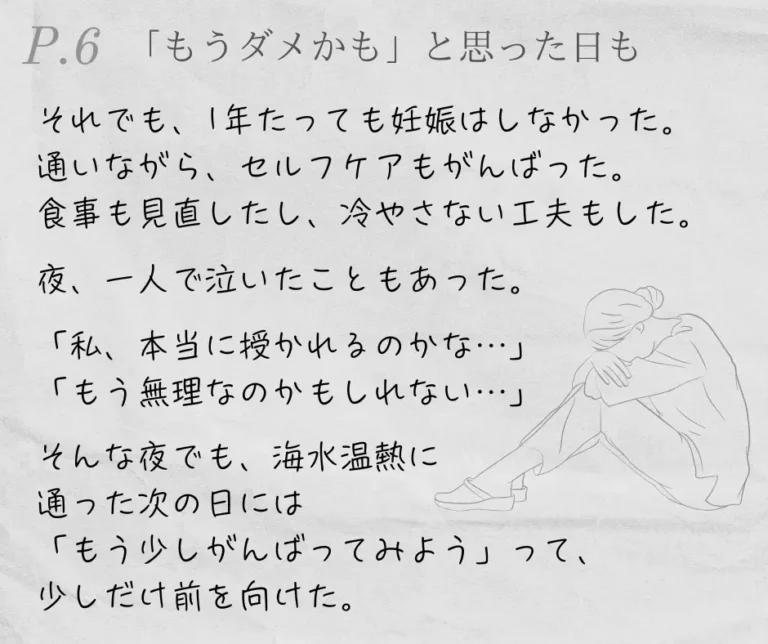 P.6 「もうダメかも」と思った日も
それでも、1年たっても妊娠はしなかった。
通いながら、セルフケアもがんばった。
食事も見直したし、冷やさない工夫もした。
夜、一人で泣いたこともあった。
「私、本当に授かれるのかな…」
「もう無理なのかもしれない…」
そんな夜でも、海水温熱に
通った次の日には
「もう少しがんばってみよう」って、
少しだけ前を向けた。